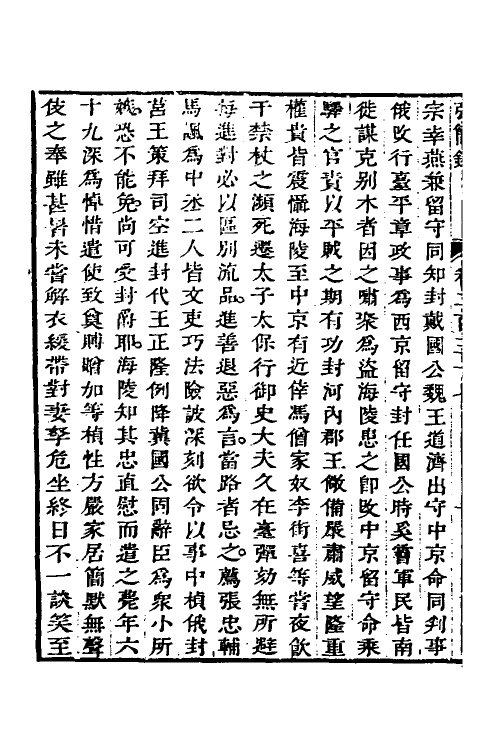 弘簡錄
宗幸燕兼留守同知封戴國公魏王道濟出守中京命同判事
俄改行臺平章政事為西京留守封任國公時奚霫軍民皆南
徙謀克別木者因之嘯聚為盜海陵患之卽改中京留守命乘
驛之官責以平賊之期有功封河內郡王儆備嚴肅威望隆重
權貴皆震懾海陵至中京有近倖馮僧家奴李街喜等嘗夜飲
干禁杖之瀕死遷太子太保行御史大夫久在臺彈劾無所避
每進對必以區別流品進善退惡為言當路者忌之薦張忠輔
馬諷為中丞二人皆文吏巧法險詖深刻欲令以事中楨俄封
莒王策拜司空進封代王正隆例降冀國公固辭臣為衆小所
嫉恐不能免尚可受封爵耶海陵知其忠直慰而遣之薨年六
十九深為悼惜遣使致食賻贈加等楨性方嚴家居簡默無聲
伎之奉雖甚暑未嘗解衣緩帶對妻孥危坐終日不一談笑至